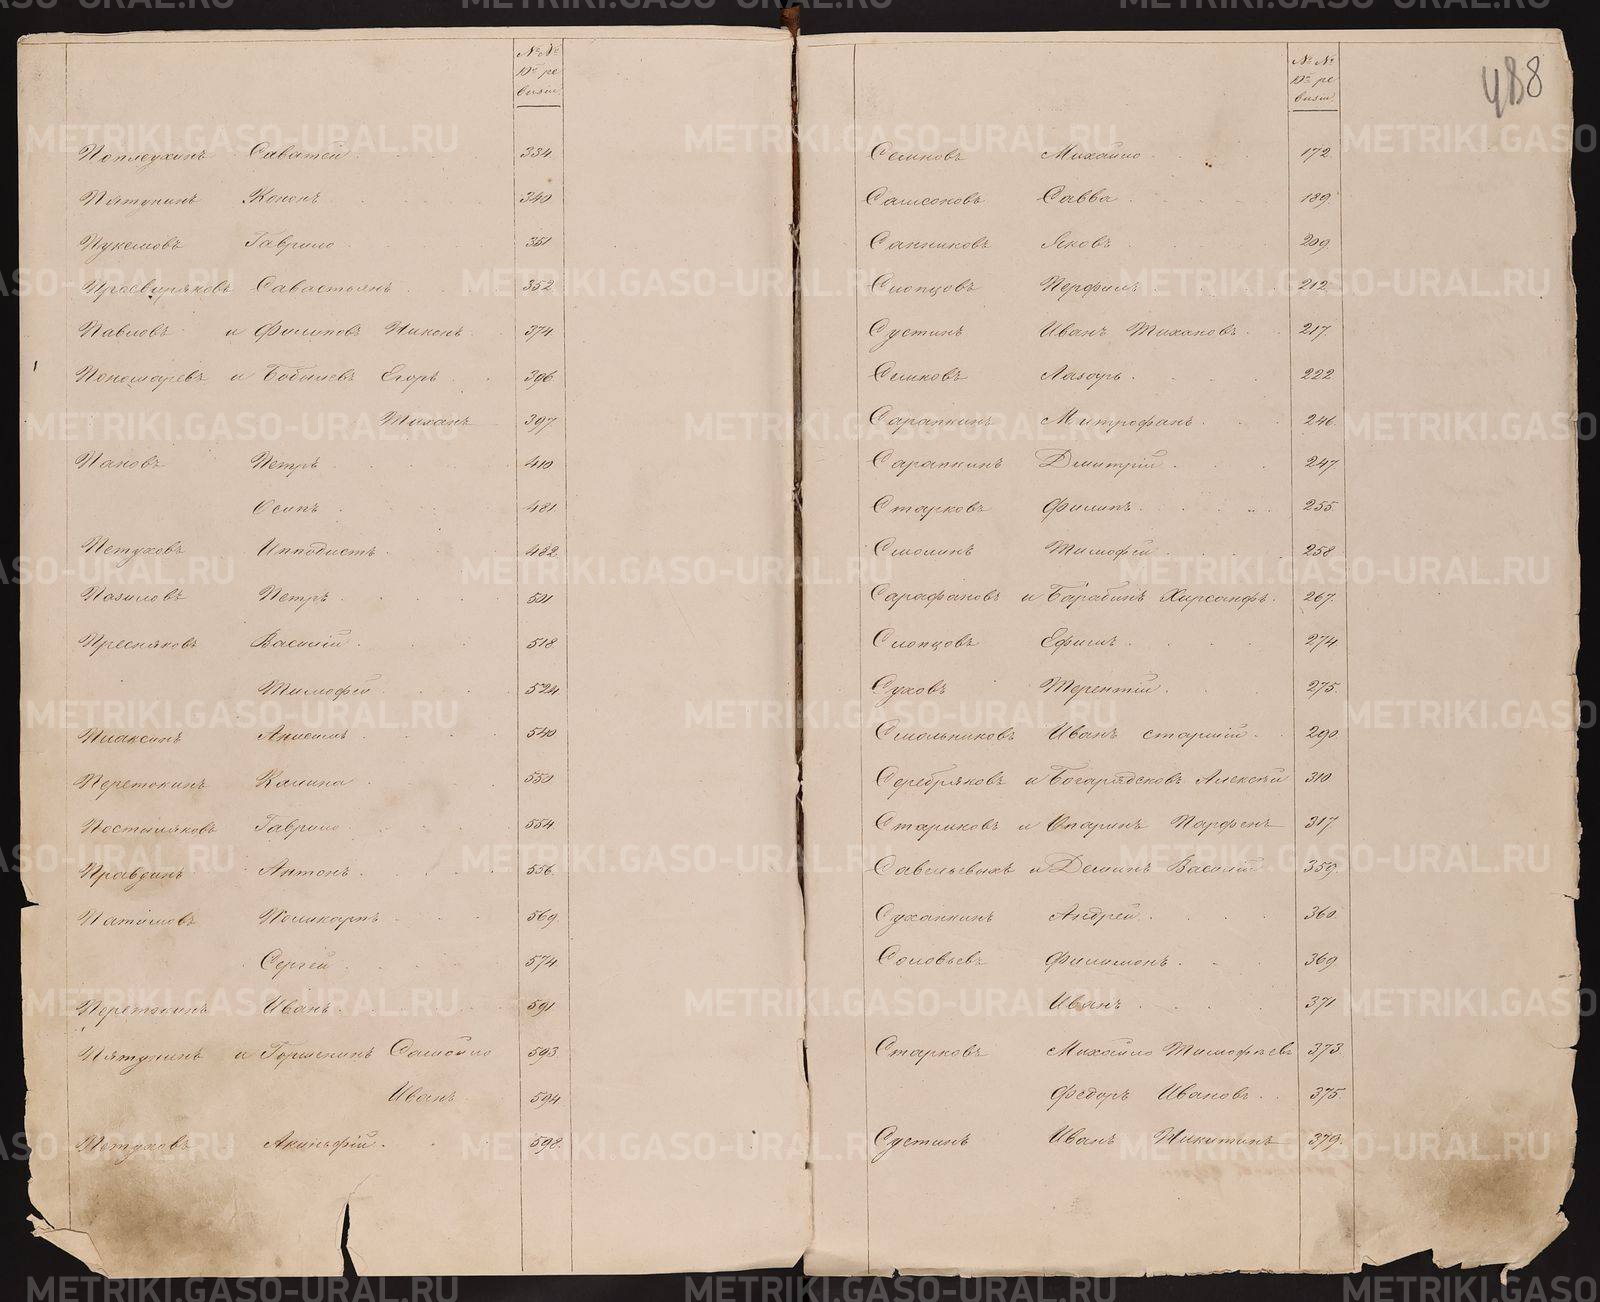 № №
10й ре
визіи
Поплеухинъ Саватей 334.
Пятунинъ Кононъ 340
Пукемовъ Гаврило 351
Просвиряковъ Савастьянъ 352.
Павловъ и Филиповъ Никонъ 374.
Пономаревъ и Бобылевъ Егоръ 396.
Тиханъ 397
Пановъ Петръ 410
Осипъ 481.
Петуховъ Ипподистъ 482.
Пазиловъ Петръ 501
Пресняковъ Василій 518
Тимофей 524.
Плаксинъ Анисимъ 540
Перетокинъ Калина 550
Постниковъ Гаврило 554.
Правдинъ Антонъ 556.
Патиловъ Поликарпъ 569.
Сергей 574.
Перетокинъ Иванъ 591
Пятунинъ и Горшенинъ Самойло 593.
Иванъ 594.
Петуховъ Акинфій 598.
№ №
10й ре
визіи
488
Семковъ Михайло 172.
Самсоновъ Савва 189.
Санниковъ Яковъ 209.
Слопцовъ Перфилъ 212.
Сустинъ Иванъ Тихановъ 217.
Семковъ Лазарь 222.
Сарапкинъ Митрофанъ 246.
Сарапкинъ Дмитрій 247.
Старковъ Филипъ 255.
Смолинъ Тимофей 258.
Сарафановъ и Барабинъ Хирсанфъ 267.
Слопцовъ Ефимъ 274.
Суховъ Терентій 275.
Смольниковъ Иванъ старшій 290
Серебряковъ и Богарядсковъ Алексѣй 310.
Стариковъ и Опаринъ Парфенъ 317.
Савельевыхъ и Деминъ Василій 359.
Суханкинъ Андрей 360.
Соловьевъ Филимонъ 369.
Иванъ 371
Старковъ Михайло Тимофеевъ 373.
Федоръ Ивановъ 375.
Сустинъ Иванъ Никитинъ 379.
METRIKI.GASO-URAL.RU